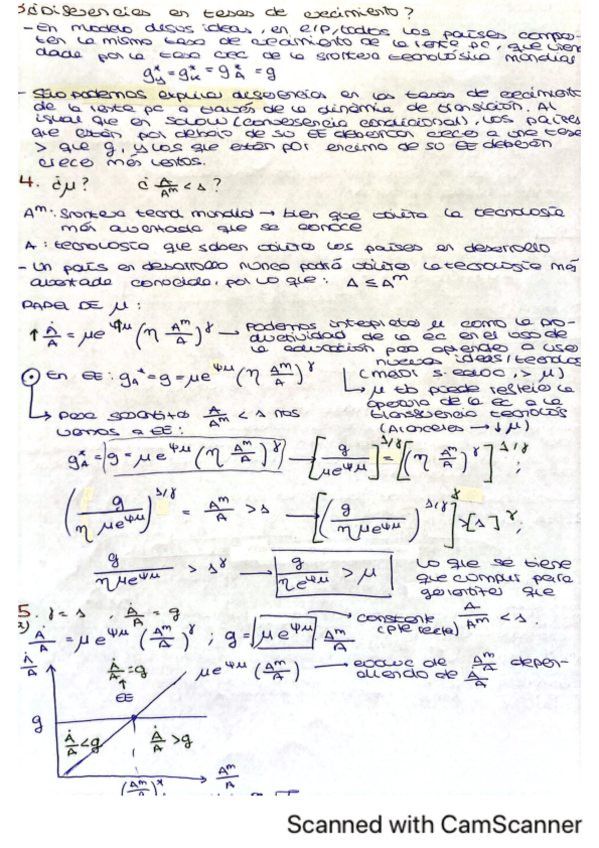 3. ¿Diferencias en tasas de crecimiento?
- En modelo difus ideas, en e/p, todos los países compar-
ten la misma tasa de crecimiento de la renta pc, que vien
dada por la tasa crec de la frontera tecnológica mundial
g*y = g*x = g*A = g
- Sólo podemos explicar diferencias en las tasas de crecimiento
de la renta pc a través de la dinámica de transición. Al
igual que en Solow (convergencia condicional), los países
que están por debajo de su EE deberían crecer a una tasa
> que g, y los que están por encima de su EE deberán
crecer más lentos.
4. ¿μ? ¿ A/Aᵐ < 1 ?
Aᵐ: frontera tecnol mundial → bien que utiliza la tecnología
más avanzada que se conoce
A: tecnología que saben utilizar los países en desarrollo
- Un país en desarrollo nunca podrá utilizar la tecnología más
avanzada conocida, por lo que: A ≤ Aᵐ
PAPEL DE μ:
↑ Ȧ/A = μe^ψμ (η Aᵐ/A)^γ → Podemos interpretar μ como la pro-
ductividad de la ec en el uso de
la educación para aprender a usar
nuevas ideas/tecnolog
(mejor s. educ, > μ)
⊙ En EE: gA* = g = μe^ψμ (η Aᵐ/A)^γ
↳ μ tb puede reflejar la
apertura de la ec a la
transferencia tecnológ
(Aranceles → ↓μ)
↳ Para garantizar A/Aᵐ < 1 nos
vamos a EE:
gA* = g = μe^ψμ (η Aᵐ/A)^γ → [g/μe^ψμ]^1/γ = [(η Aᵐ/A)^γ]^1/γ ;
(g/η μe^ψμ)^1/γ = Aᵐ/A > 1 → [(g/η μe^ψμ)^1/γ]^γ > [1]^γ ;
g/ημe^ψμ > 1^γ → g/ηe^ψμ > μ
Lo que se tiene
que cumplir para
garantizar que
A/Aᵐ < 1.
5. γ = 1 , Ȧ/A = g
Ȧ/A = μe^ψμ (Aᵐ/A)^γ ; g = μe^ψμ Aᵐ/A
→ constante
(pte recta)
Ȧ/A
Ȧ/A = g
μe^ψμ (Aᵐ/A) → evoluc de Aᵐ/A depen-
diendo de Ȧ/A
EE
g
Ȧ/A < g
Ȧ/A > g
Aᵐ/A
(Aᵐ/A)*
Scanned with CamScanner